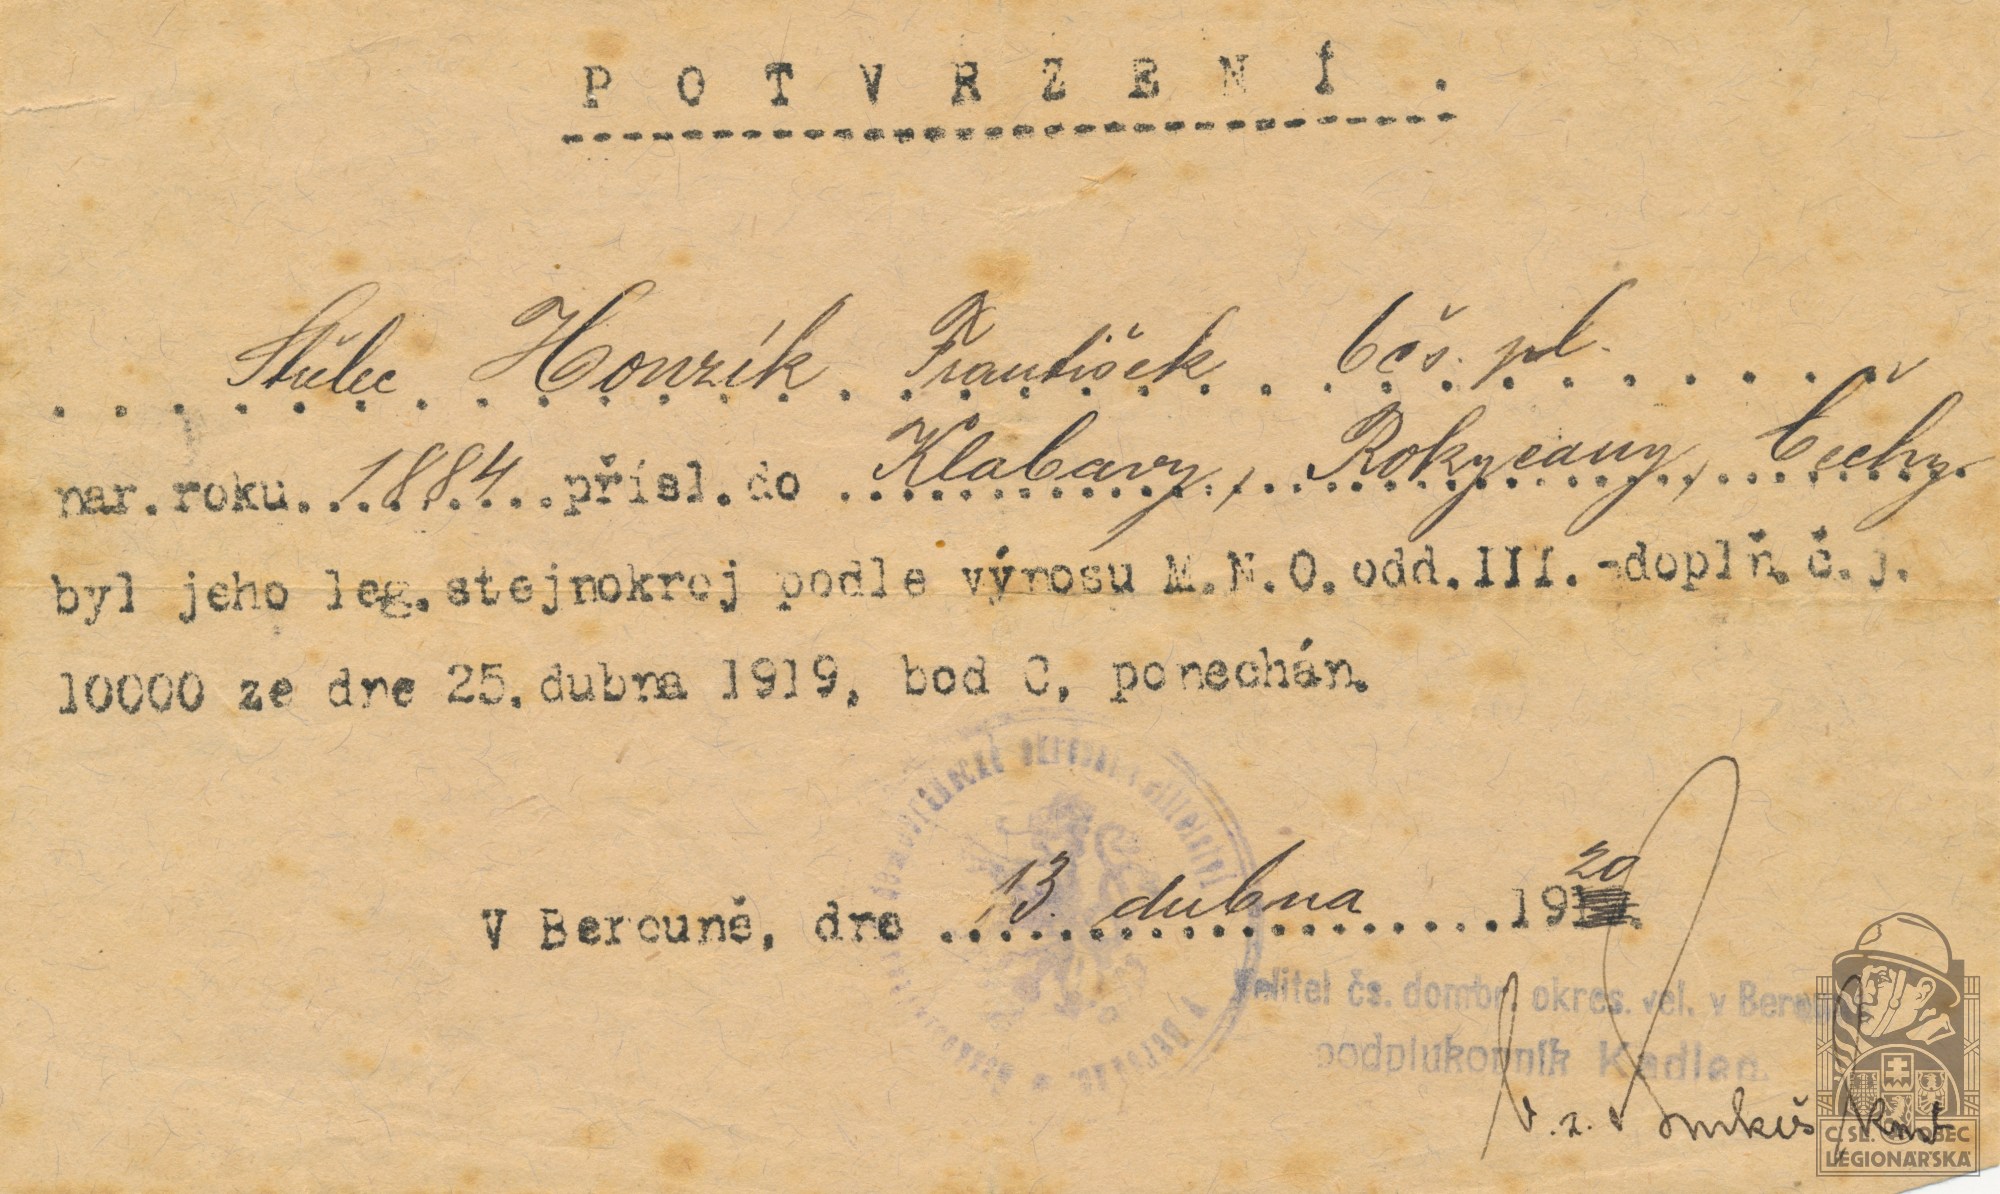 POTVRZENÍ.
Střelec Honzík František 6 čs. pl.
nar.roku 1884 přísl.do Klabavy, Rokycany, Čechy.
byl jeho leg.stejnokroj podle výnosu M.N.O.odd.III.-doplň.č.j.
10000 ze dne 25.dubna 1919, bod C, ponechán.
V Berouně, dne 13. dubna 1920
Velitel čs. dombr. okres. vel. v
podplukovník Kadlec
v. z.
Č. SL. OBEC
LEGIONÁŘSKÁ